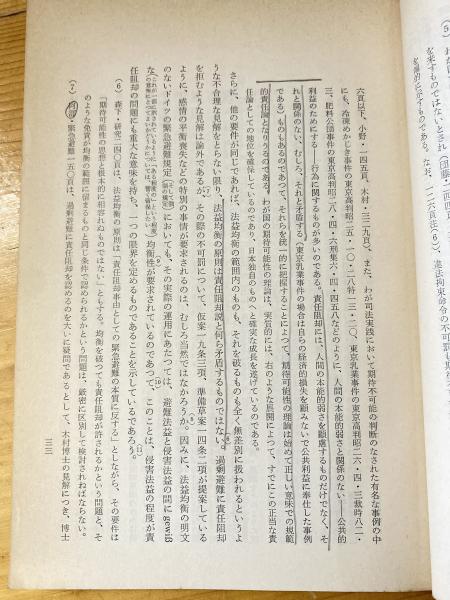 六頁以下、小野・一四五頁、木村・三二九頁)、また、わが司法実践において期待不可能の判断のなされた有名な事例の中
にも、冷凍めかじき事件の東京高判昭二五・一〇・二八特一三・二〇、東京乳業事件の東京高判昭二六・四・三裁時八二・
三、肥料公団事件の東京高判昭二八・四・六刑集六・四・四五八などのように、人間の本能的弱さと関係のない――公共的
利益のためにする――行為に関するものが多いのである。責任阻却には、人間の本能的弱さを顧慮するものだけでなく、そ
れと関係のない、むしろ、それと矛盾する(東京乳業事件の場合は自らの経済的損失を顧みないで公共利益に奉仕した事例
である)ものもあるのであって、それらを統一的に把握することによって、期待可能性の理論は始めて正しい意味での規範
的責任論となりうるのである。わが国の期待可能性の理論は、実質的には、右のような展開によって、すでにこの正当な責
任論としての地位を確保しているのであり、日本独自のものへと確実な成長を遂げているのである。
さらに、他の要件が同じであれば、法益均衡の範囲内のものも、それを破るものも全く無差別に扱われるというよ
うな不合理な見解をとらない限り、法益均衡の原則は責任阻却説と何ら矛盾するものではない。過剰避難に責任阻却
を拒むような見解は論外であるが、その際の不可罰について、仮案一九条三項、準備草案一四条二項が提案している
ように、感情の平衡喪失などの特別の事情が要求されるのは、むしろ当然ではなかろうか。因みに、法益均衡の明文
のないドイツの緊急避難規定においても、その実際の運用にあたっては、避難法益と侵害法益の間に gewiß
な均衡性が要求されているのであって、このことは、侵害法益の程度が責
任阻却の問題にも重大な意味を持ち、一つの限界を定めるものであることを示しているであろう。
(6) 森下・研究二四〇頁は、法益均衡の原則は「責任阻却事由としての緊急避難の本質に反する」としながら、その要件は
「期待可能性の思想と根本的に相容れぬものではない」ともする。均衡を破っても責任阻却が許されるかという問題と、そ
のような免責が均衡の範囲に留まるものと同じ条件で認められるかという問題は、厳密に区別して検討されねばならない。
(7) 緊急避難一五〇頁は、過剰避難に責任阻却を認めるのを大いに疑問であるとして、木村博士の見解につき、博士
三三